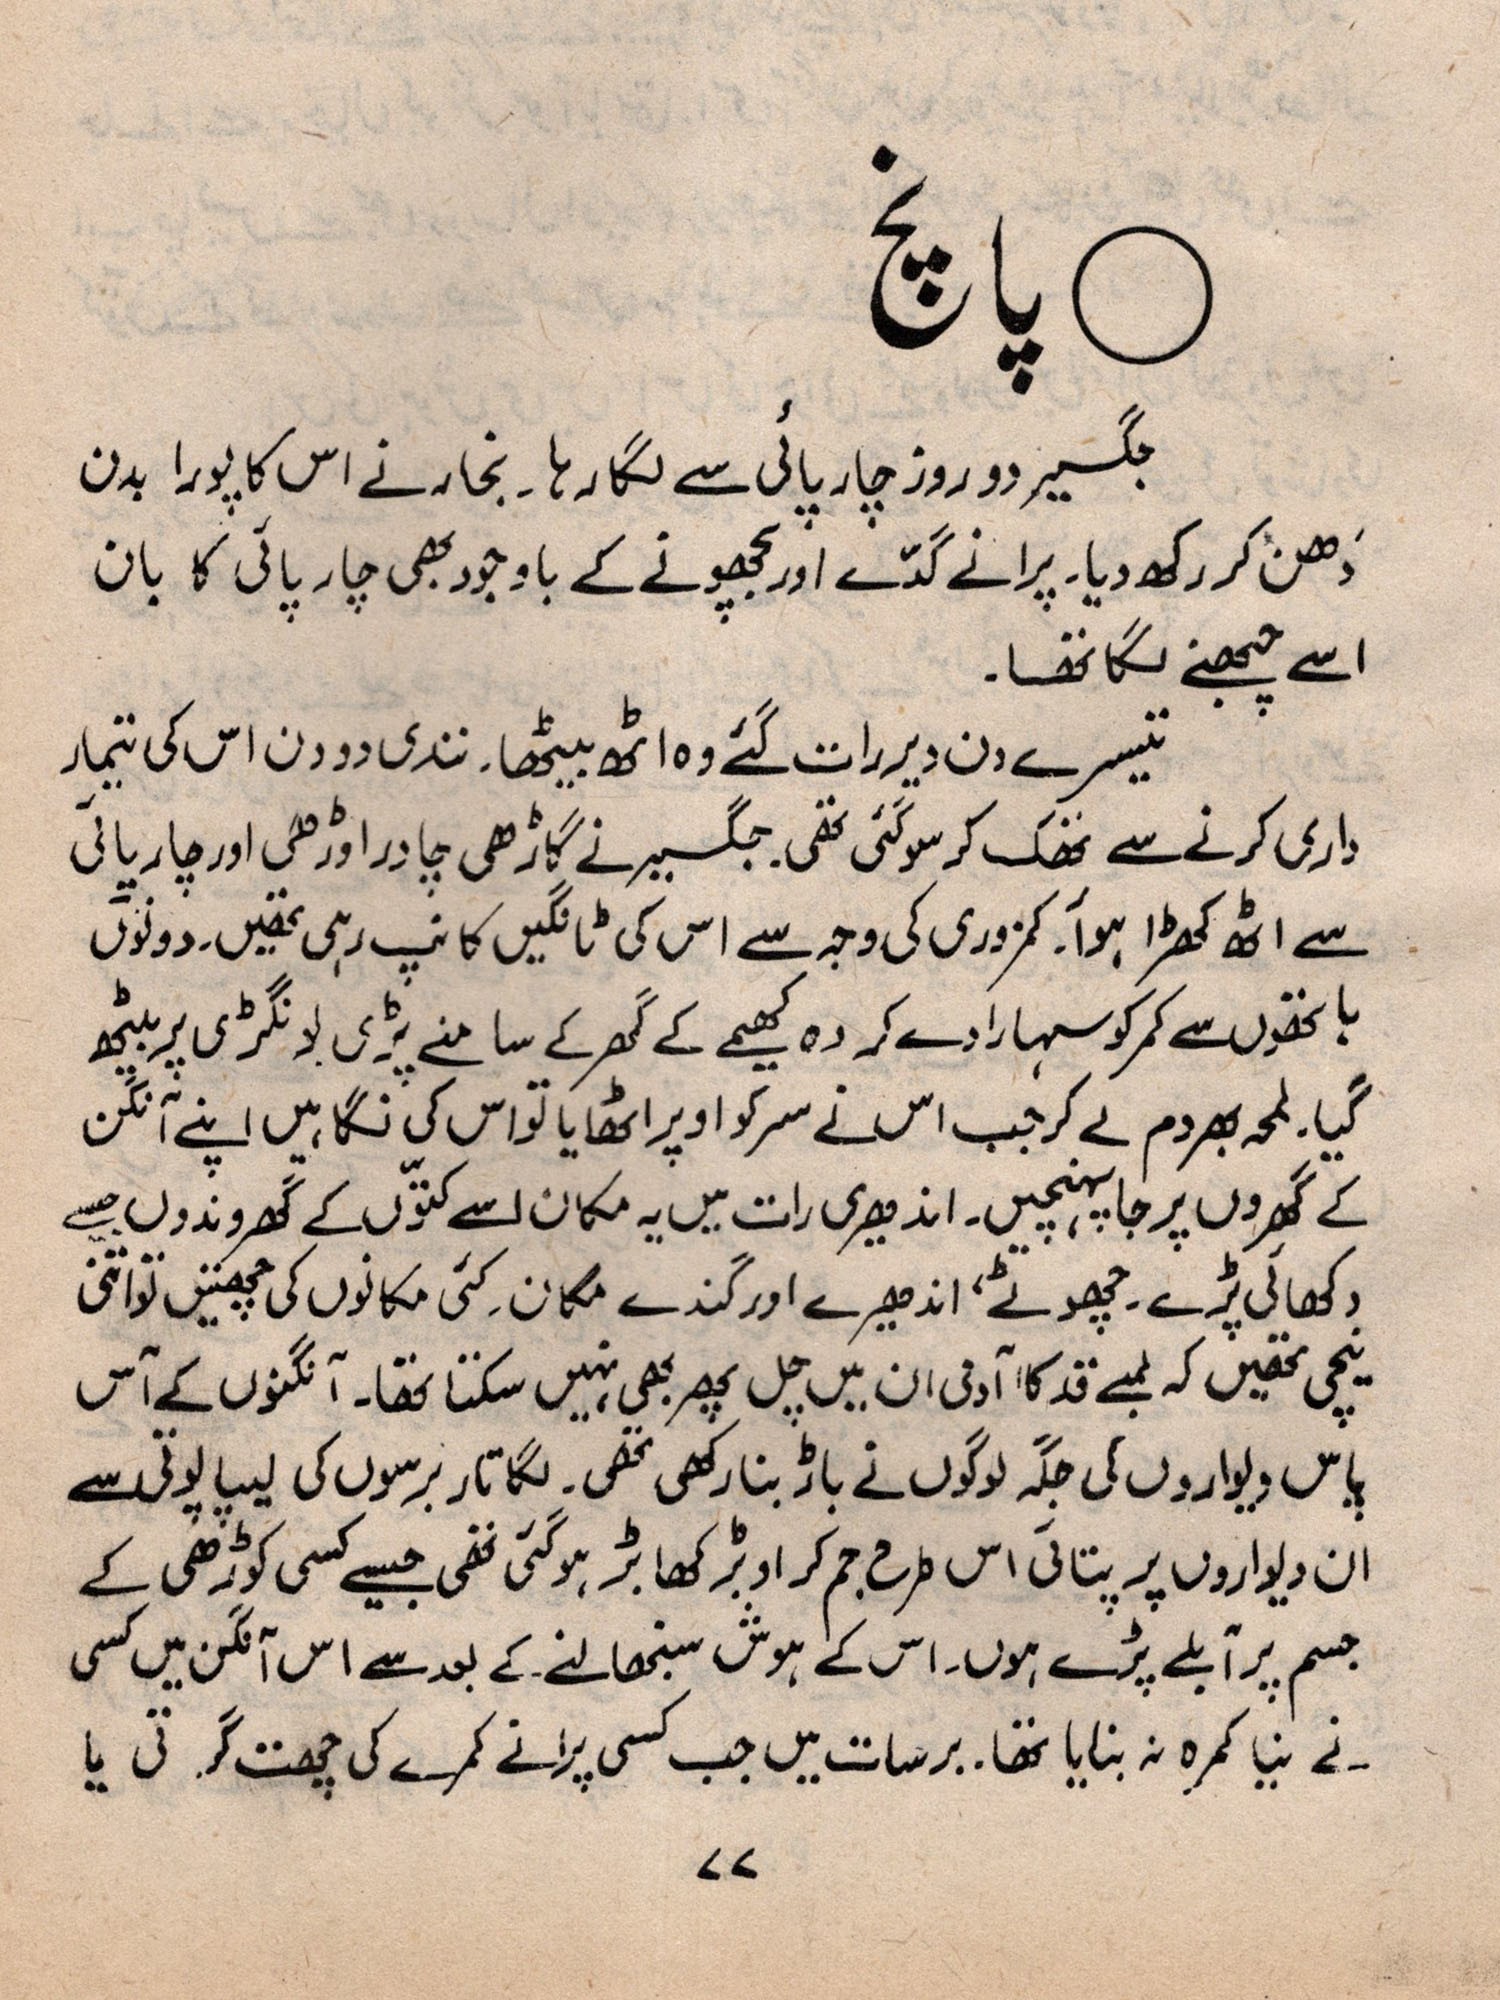 پانچ
جگسیر دو روز چارپائی سے لگا رہا۔ بخار نے اس کا پورا بدن
دُھن کر رکھ دیا۔ پرانے گدّے اور بچھونے کے باوجود بھی چارپائی کا بان
اسے چبھنے لگا تھا۔
تیسرے دن دیر رات گئے وہ اٹھ بیٹھا۔ نندی دو دن اس کی تیمار
داری کرنے سے تھک کر سو گئی تھی۔ جگسیر نے گاڑھی چادر اوڑھی اور چارپائی
سے اٹھ کھڑا ہوا۔ کمزوری کی وجہ سے اس کی ٹانگیں کانپ رہی تھیں۔ دونوں
ہاتھوں سے کمر کو سہارا دے کر وہ کھیمے کے گھر کے سامنے پڑی لانگڑی پر بیٹھ
گیا۔ لمحہ بھر دم لے کر جب اس نے سر کو اوپر اٹھایا تو اس کی نگاہیں اپنے آنگن
کے گھروں پر جا پہنچیں۔ اندھیری رات میں یہ مکان اسے کتّوں کے گھروندوں جیسے
دکھائی پڑے۔ چھوٹے، اندھیرے اور گندے مکان۔ کئی مکانوں کی چھتیں تو اتنی
نیچی تھیں کہ لمبے قد کا آدمی ان میں چل پھر بھی نہیں سکتا تھا۔ آنگنوں کے آس
پاس دیواروں کی جگہ لوگوں نے باڑ بنا رکھی تھی۔ لگاتار برسوں کی لیپا پوتی سے
ان دیواروں پر پتائی اس طرح جم کر اوبڑ کھابڑ ہو گئی تھی جیسے کسی کوڑھی کے
جسم پر آبلے پڑے ہوں۔ اس کے ہوش سنبھالنے کے بعد سے اس آنگن میں کسی
نے نیا کمرہ نہ بنایا تھا۔ برسات میں جب کسی پرانے کمرے کی چھت گرتی یا
۷۷